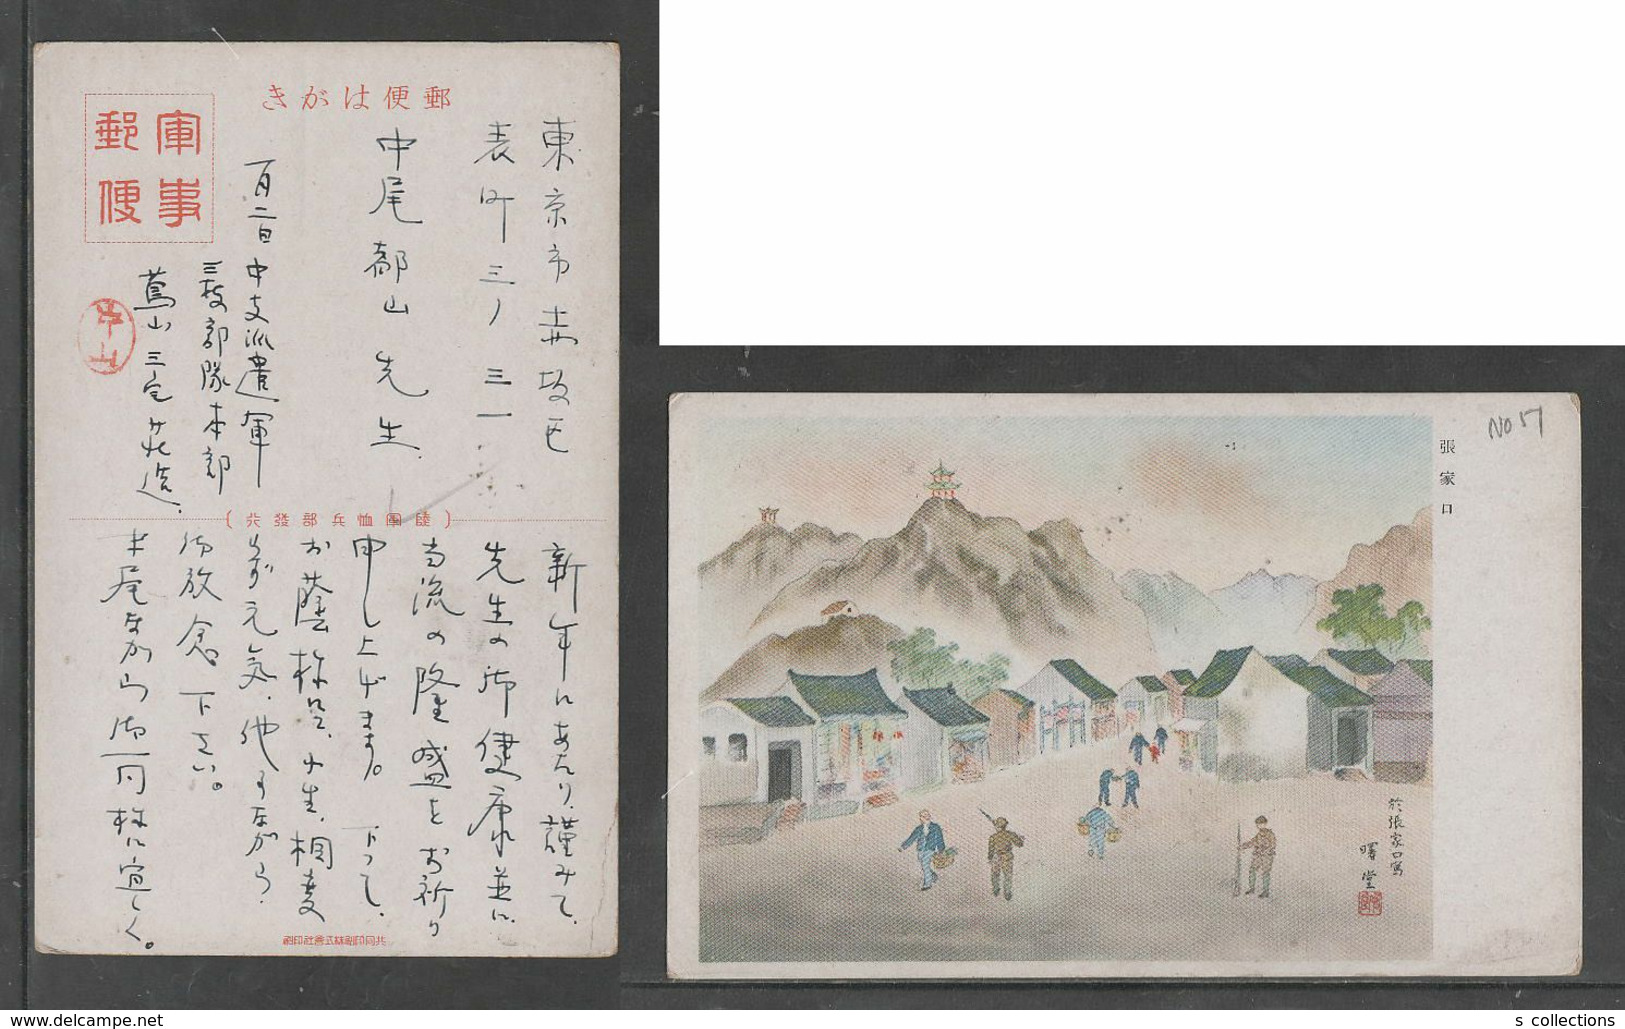 郵便はがき
軍事
郵便
東京市赤坂区
表町三ノ三一
中尾都山先生
一月二日 中支派遣軍
三枝部隊本部
蔦山三
中山
(陸軍恤兵部發行)
新年にあたり、謹みて、
先生の御健康並に、
当流の隆盛をお祈り
申し上げます。下って、
お蔭様にて、小生、相変
らず元気、他事ながら、
御放念下さい。
中尾
御一同様に宜しく。
共同印刷株式會社印刷
No 17
張家口
於張家口寫
曙堂
s collections